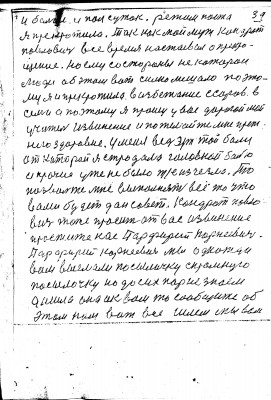 39
и более. и пол суток. режим поста
я прекротила. Так как мой муж Кондрат
павлович все время настаивал о прекро-
щение. но ему со стороны не которои
люди об этом вот сильно мешало поэто-
му я и прекротила. во избежание ссоров. в
семи а поэтому я прошу у вас дорогой мой
учитель извинение и пожелайте мне преж-
него здоровие. У меня ведь той боли
от которой я страдала головной боли
и прочие уже не было же изчезла. То
позвольте мне выполнять всё то что
вами будет дан совет. Кондрат павло-
вич тоже просит от вас извинение
простите нас Парфирий Корнеевич.
Парфирий Корнеевич мы однажды
вам выслали посылочку скромную
посылочку но до сих пор не знаем
дошла она ик вам то сообщите об
этом нам вот все шлем мы вам